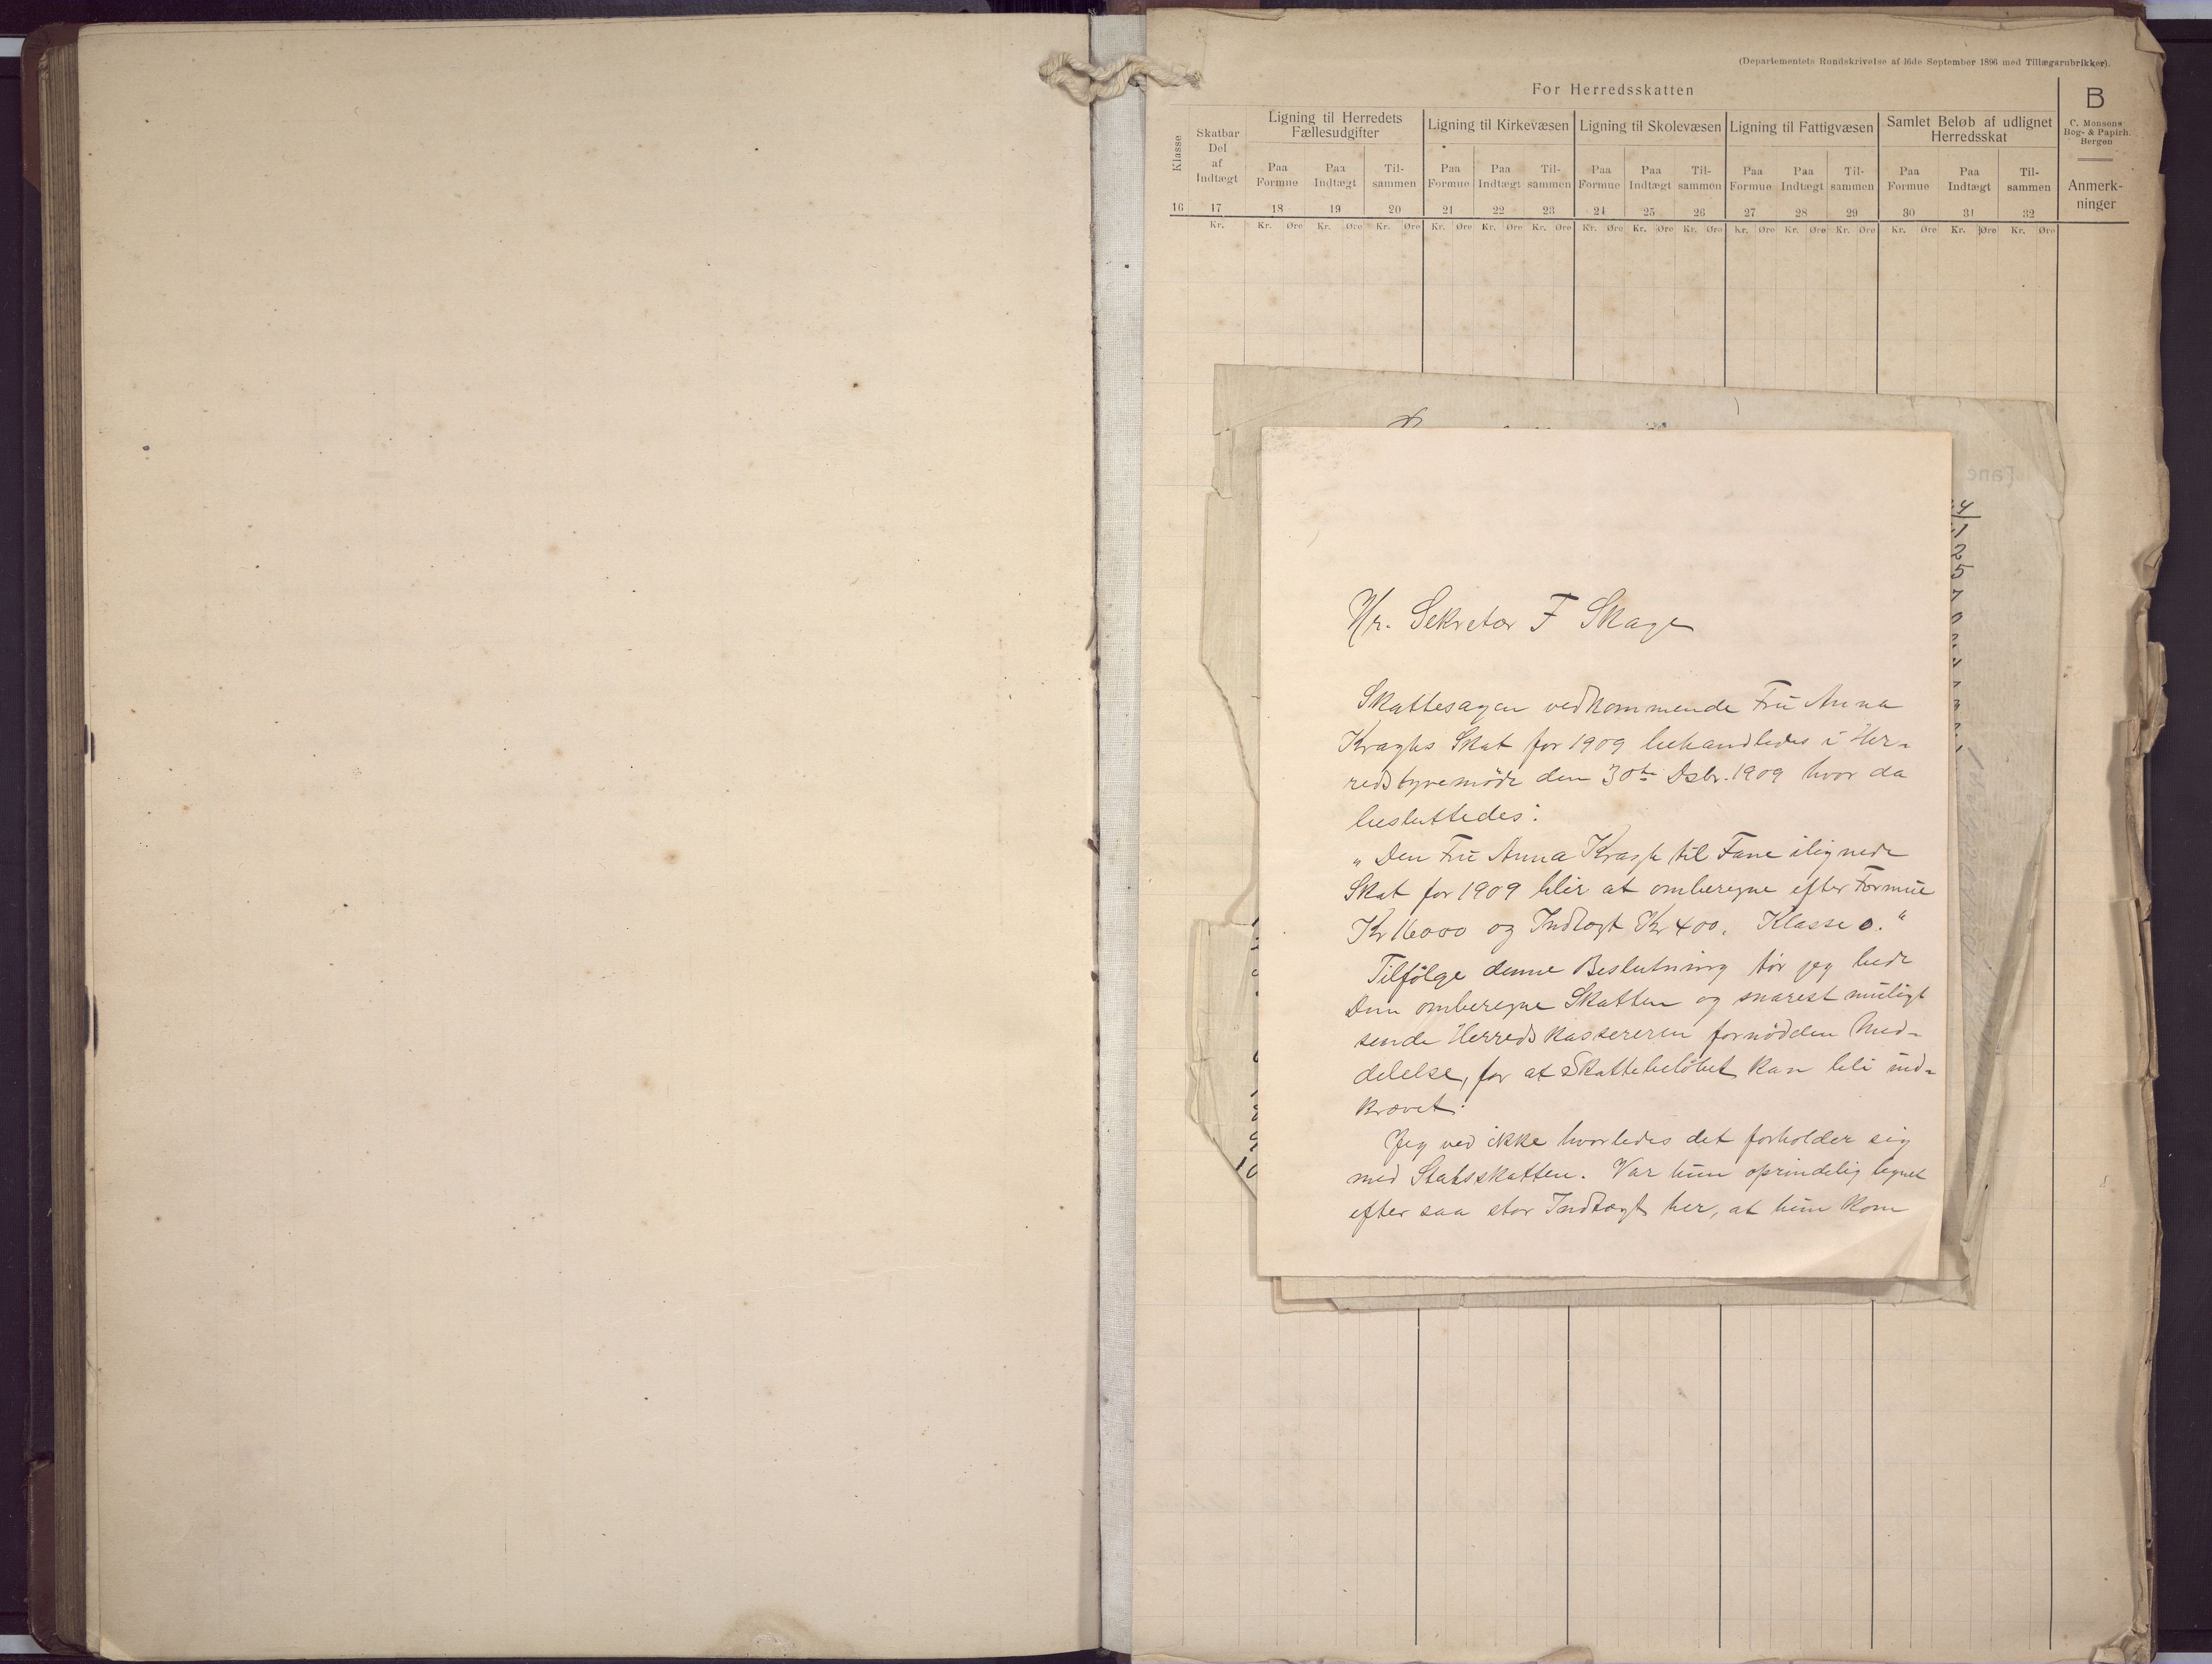 (Departementets Rundskrivelse af 16de September 1896 med Tillægsrubrikker).
For Herredsskatten
B
C. Monsens
Bog- & Papirh.
Bergen
Anmerk-
ninger
Klasse
Skatbar
Del
af
Indtægt
Ligning til Herredets
Fællesudgifter
Ligning til Kirkevæsen
Ligning til Skolevæsen
Ligning til Fattigvæsen
Samlet Beløb af udlignet
Herredsskat
Paa Formue Paa Indtægt Til-sammen Paa Formue Paa Indtægt Til-sammen Paa Formue Paa Indtægt Til-sammen Paa Formue Paa Indtægt Til-sammen Paa Formue Paa Indtægt Til-sammen
16 17 18 19 20 21 22 23 24 25 26 27 28 29 30 31 32
Kr. Kr. Øre Kr. Øre Kr. Øre Kr. Øre Kr. Øre Kr. Øre Kr. Øre Kr. Øre Kr. Øre Kr. Øre Kr. Øre Kr. Øre Kr. Øre Kr. Øre Kr. Øre
Hr. Sekretær F Skage
Skattesagen vedkommende Fru Anna
Kraghs Skat for 1909 behandledes i Her-
redstyremöde den 30te Dsbr. 1909 hvor da
besluttedes:
"Den Fru Anna Kragh til Fane ilignede
Skat for 1909 blir at omberegne efter Formue
Kr 16000 og Indtægt Kr 400. Klasse 0."
Tilfölge denne Beslutning tör jeg bede
Dem omberegne Skatten og snarest muligt
sende Herredskassereren fornödden Med-
delelse, for at Skattebelöbet kan bli ind-
krævet.
Jeg ved ikke hvorledes det forholder sig
med Statsskatten. Var hun oprindelig lignet
efter saa stor Indtægt her, at hun kom